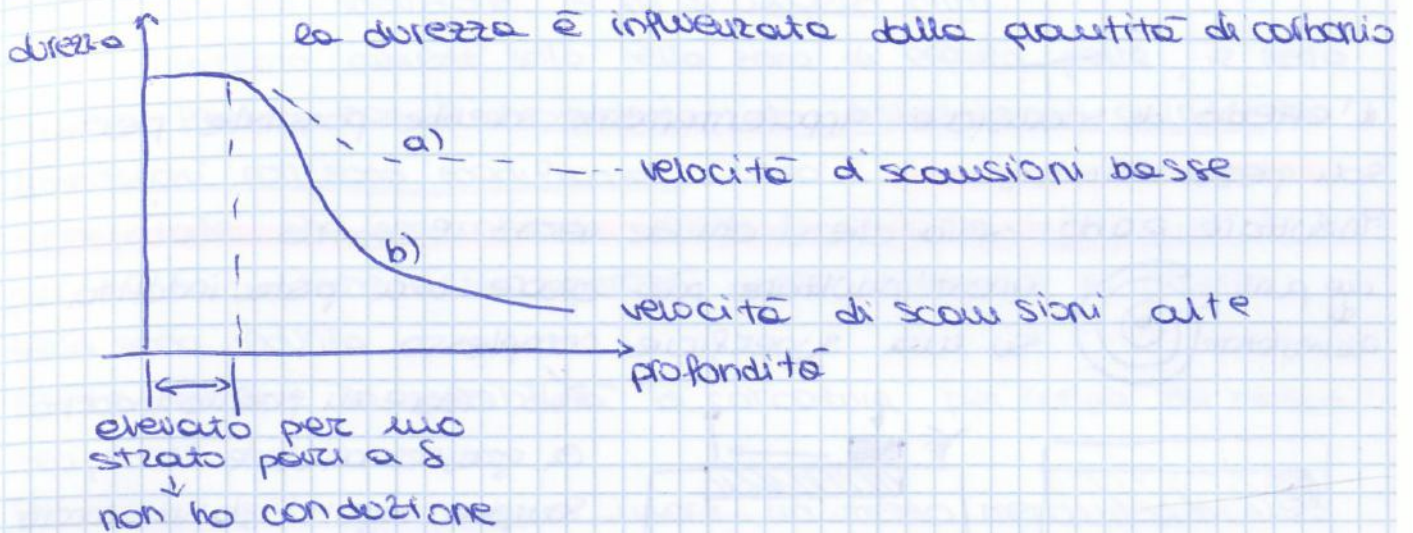 la durezza è influenzata dalla quantità di carbonio
durezza
a)
velocità di scansioni basse
b)
velocità di scansioni alte
profondità
elevato per uno
strato pari a δ
↓
non ho conduzione